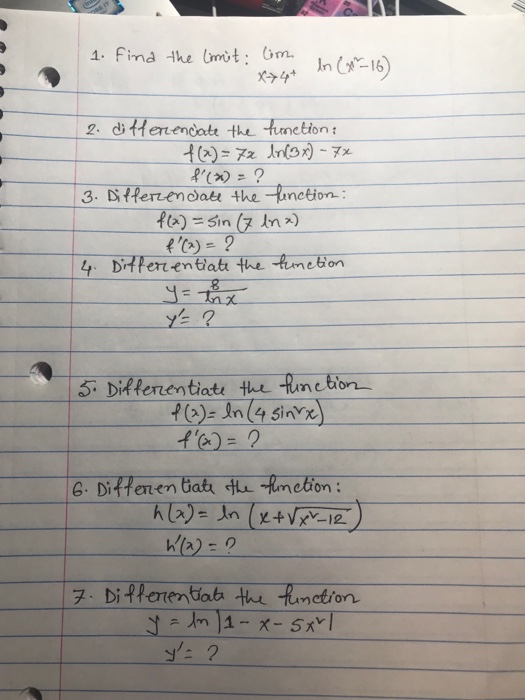 1. Find the limit: lim x→4⁺ ln (x²-16)
2. differenciate the function:
f(x) = 7x ln(3x) - 7x
f'(x) = ?
3. Differenciate the function:
f(x) = sin (7 ln x)
f'(x) = ?
4. Differentiate the function
y = 8/ln x
y' = ?
5. Differentiate the function
f(x) = ln (4 sin²x)
f'(x) = ?
6. Differentiate the function:
h(x) = ln (x+√x²-12)
h'(x) = ?
7. Differentiate the function
y = ln |1 - x - 5x²|
y' = ?